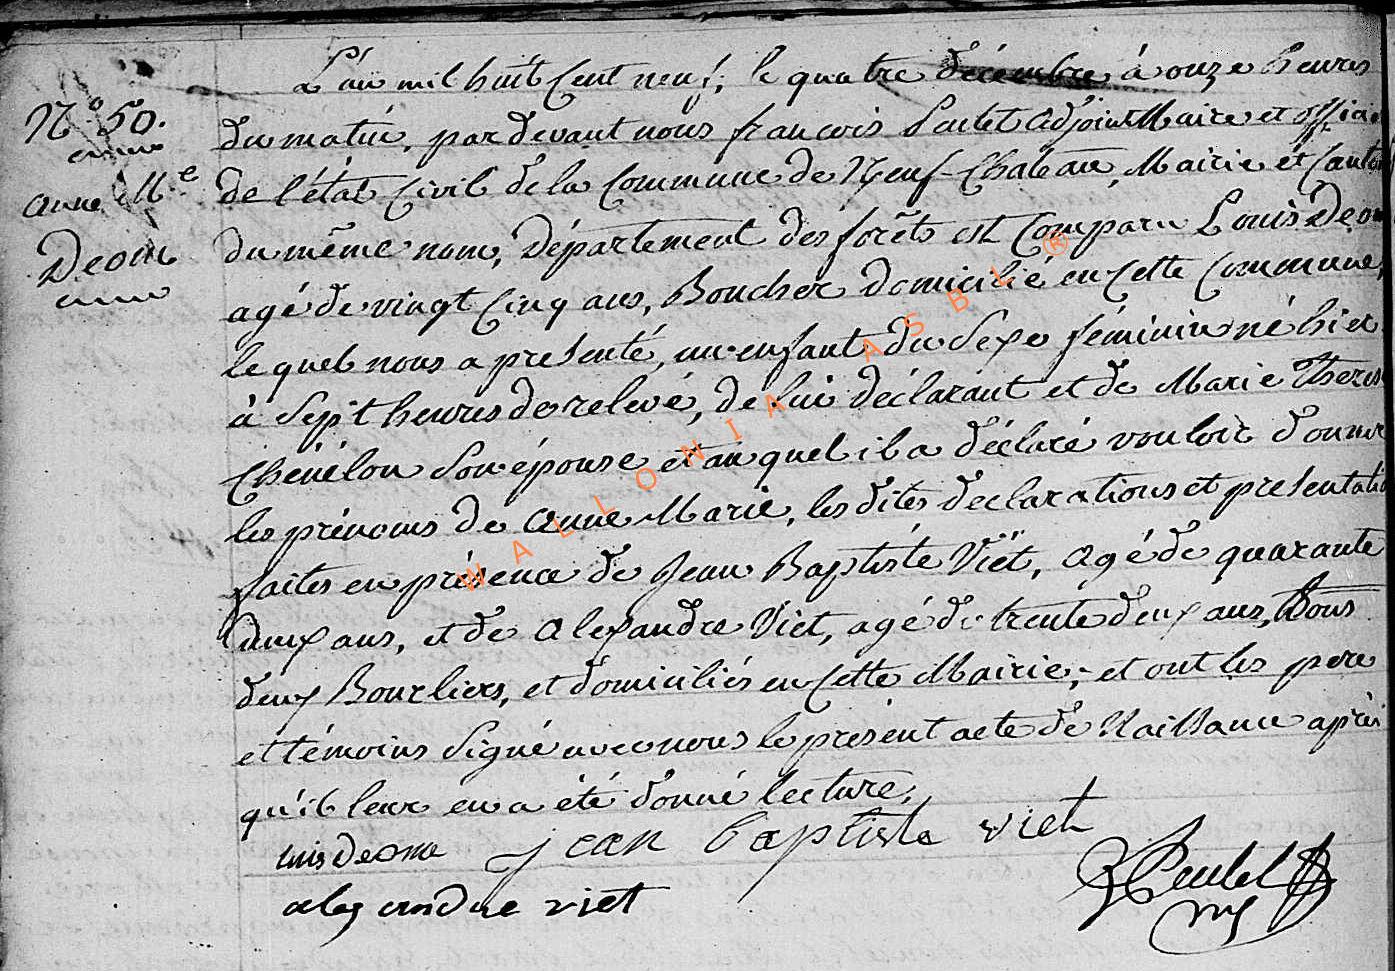 N° 50.
anne M.e
Deom
L'an mil huit cent neuf, le quatre décembre à onze heures
du matin, par devant nous françois Poulet adjoint Maire et officier
de l'état Civil de la Commune de Neuf-Chateau, Mairie et Canton
du même nom, Département des forêts est Comparu Louis Deom
agé de vingt Cinq ans, Boucher domicilié en Cette Commune,
lequel nous a présenté, un enfant du Sexe féminin né hier
à Sept heures de relevé, de lui déclarant et de Marie Therese
Chénélon Son épouse et auquel il a déclaré vouloir donner
les prénoms de anne Marie, les dites déclarations et présentation
faites en présence de Jean Baptiste Viet, agé de quarante
deux ans, et de alexandre Viet, agé de trente deux ans, Tous
deux Bourliers, et domiciliés en Cette Mairie, et ont les pere
et témoins Signé avec nous le présent acte de Naissance après
qu'il leur en a été donné lecture.
Louis deome jean baptiste viet
alexandre viet
WALLONIA ASBL ®